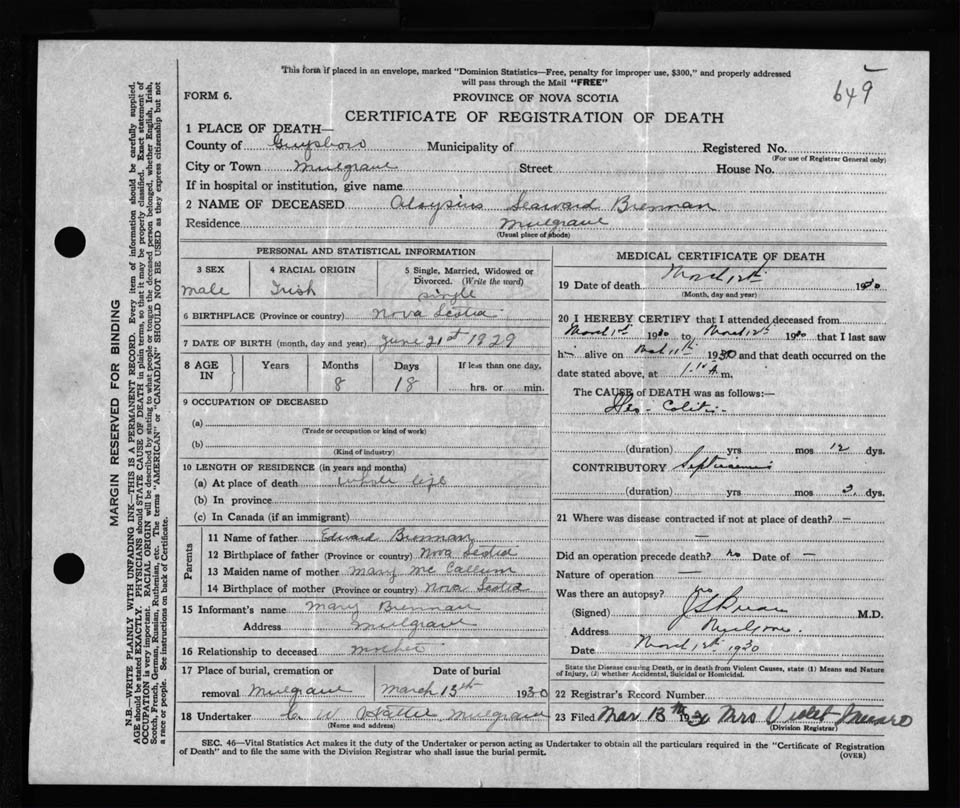 This form if placed in an envelope, marked "Dominion Statistics—Free, penalty for improper use, $300," and properly addressed
will pass through the Mail "FREE"
649
FORM 6.
PROVINCE OF NOVA SCOTIA
CERTIFICATE OF REGISTRATION OF DEATH
1 PLACE OF DEATH—
County of Guysboro Municipality of Registered No.
(For use of Registrar General only)
City or Town Mulgrave Street House No.
If in hospital or institution, give name
2 NAME OF DECEASED Aloysius Seaward Brennan
Residence Mulgrave
(Usual place of abode)
PERSONAL AND STATISTICAL INFORMATION
3 SEX 4 RACIAL ORIGIN 5 Single, Married, Widowed or
Divorced. (Write the word)
male Irish single
6 BIRTHPLACE (Province or country) Nova Scotia
7 DATE OF BIRTH (month, day and year) June 21st 1929
8 AGE IN Years Months Days If less than one day,
8 18 hrs. or min.
9 OCCUPATION OF DECEASED
(a)
(Trade or occupation or kind of work)
(b)
(Kind of industry)
10 LENGTH OF RESIDENCE (in years and months)
(a) At place of death whole life
(b) In province
(c) In Canada (if an immigrant)
Parents
11 Name of father Edward Brennan
12 Birthplace of father (Province or country) Nova Scotia
13 Maiden name of mother Mary McCallum
14 Birthplace of mother (Province or country) Nova Scotia
15 Informant's name Mary Brennan
Address Mulgrave
16 Relationship to deceased mother
17 Place of burial, cremation or Date of burial
removal Mulgrave March 13th 1930
18 Undertaker C. W. Mulgrave
(Name and address)
MEDICAL CERTIFICATE OF DEATH
19 Date of death March 12th 1930
(Month, day and year)
20 I HEREBY CERTIFY that I attended deceased from
March 1st 1930 to March 12th 1930 that I last saw
h alive on March 11th 1930 and that death occurred on
date stated above, at m.
The CAUSE of DEATH was as follows:—
Ileo-Colitis
(duration) yrs mos 12 dys.
CONTRIBUTORY Septicaemia
(duration) yrs mos 2 dys.
21 Where was disease contracted if not at place of death? —
—
Did an operation precede death? no Date of —
Nature of operation —
Was there an autopsy? no
(Signed) M.D.
Address Mulgrave
Date March 12th 1930
State the Disease causing Death, or in death from Violent Causes, state (1) Means and Nature
of Injury, (2) whether Accidental, Suicidal or Homicidal.
22 Registrar's Record Number
23 Filed Mar 13th 1930 Mrs Violet
(Division Registrar)
SEC. 46—Vital Statistics Act makes it the duty of the Undertaker or person acting as Undertaker to obtain all the particulars required in the "Certificate of Registration
of Death" and to file the same with the Division Registrar who shall issue the burial permit.
(OVER)
MARGIN RESERVED FOR BINDING
N.B.—WRITE PLAINLY WITH UNFADING INK—THIS IS A PERMANENT RECORD. Every item of information should be carefully supplied.
AGE should be stated EXACTLY. PHYSICIANS should STATE CAUSE OF DEATH in plain terms, so that it may be properly classified. Exact statement of
OCCUPATION is very important. RACIAL ORIGIN will be described by stating to what people or tongue the deceased person belonged, whether English, Irish,
Scotch, French, German, Russian, Ruthenian, etc. The terms "AMERICAN" or "CANADIAN" SHOULD NOT BE USED as they express citizenship but not
a race or people. See instructions on back of Certificate.